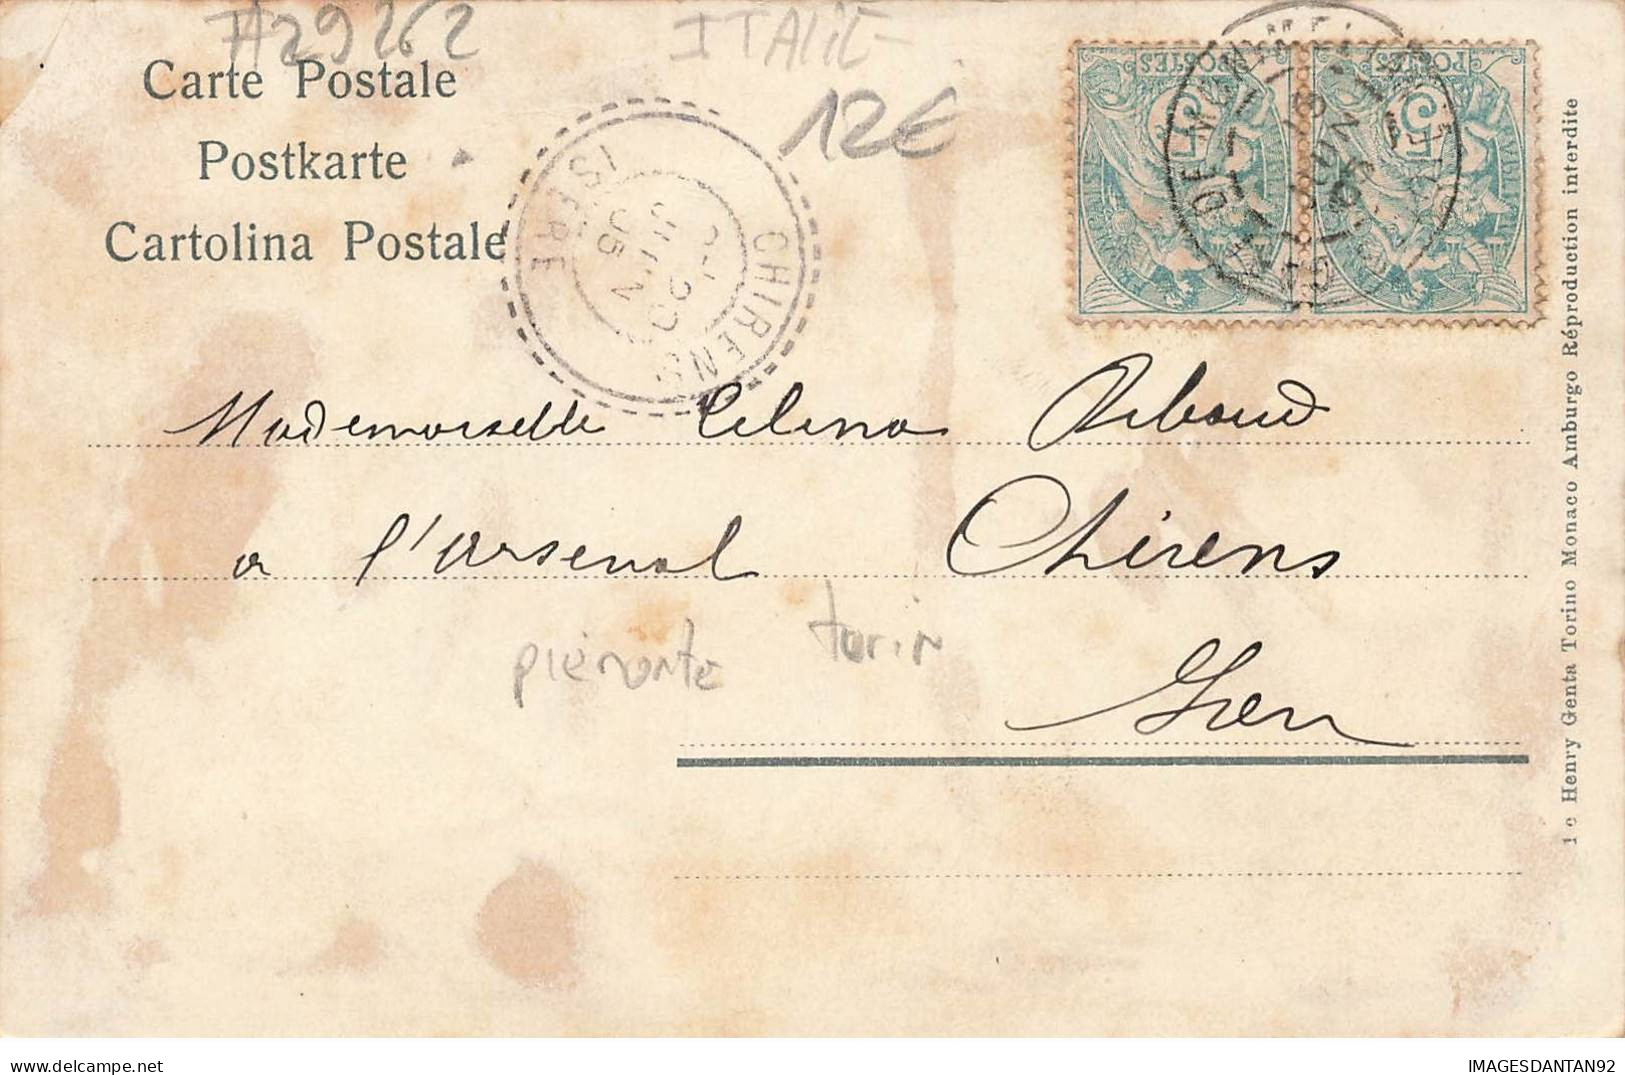 A29262
ITALIE
12€
Carte Postale
Postkarte
Cartolina Postale
CHIRENS
ISERE
20
JUIN
05
POSTES
POSTES
18
JUIN
05
Mademoiselle Celina Riboud
a l'arsenal Chirens
piémonte turin
Isere
1 c Henry Genta Torino Monaco Amburgo Réproduction interdite
IMAGESDANTAN92